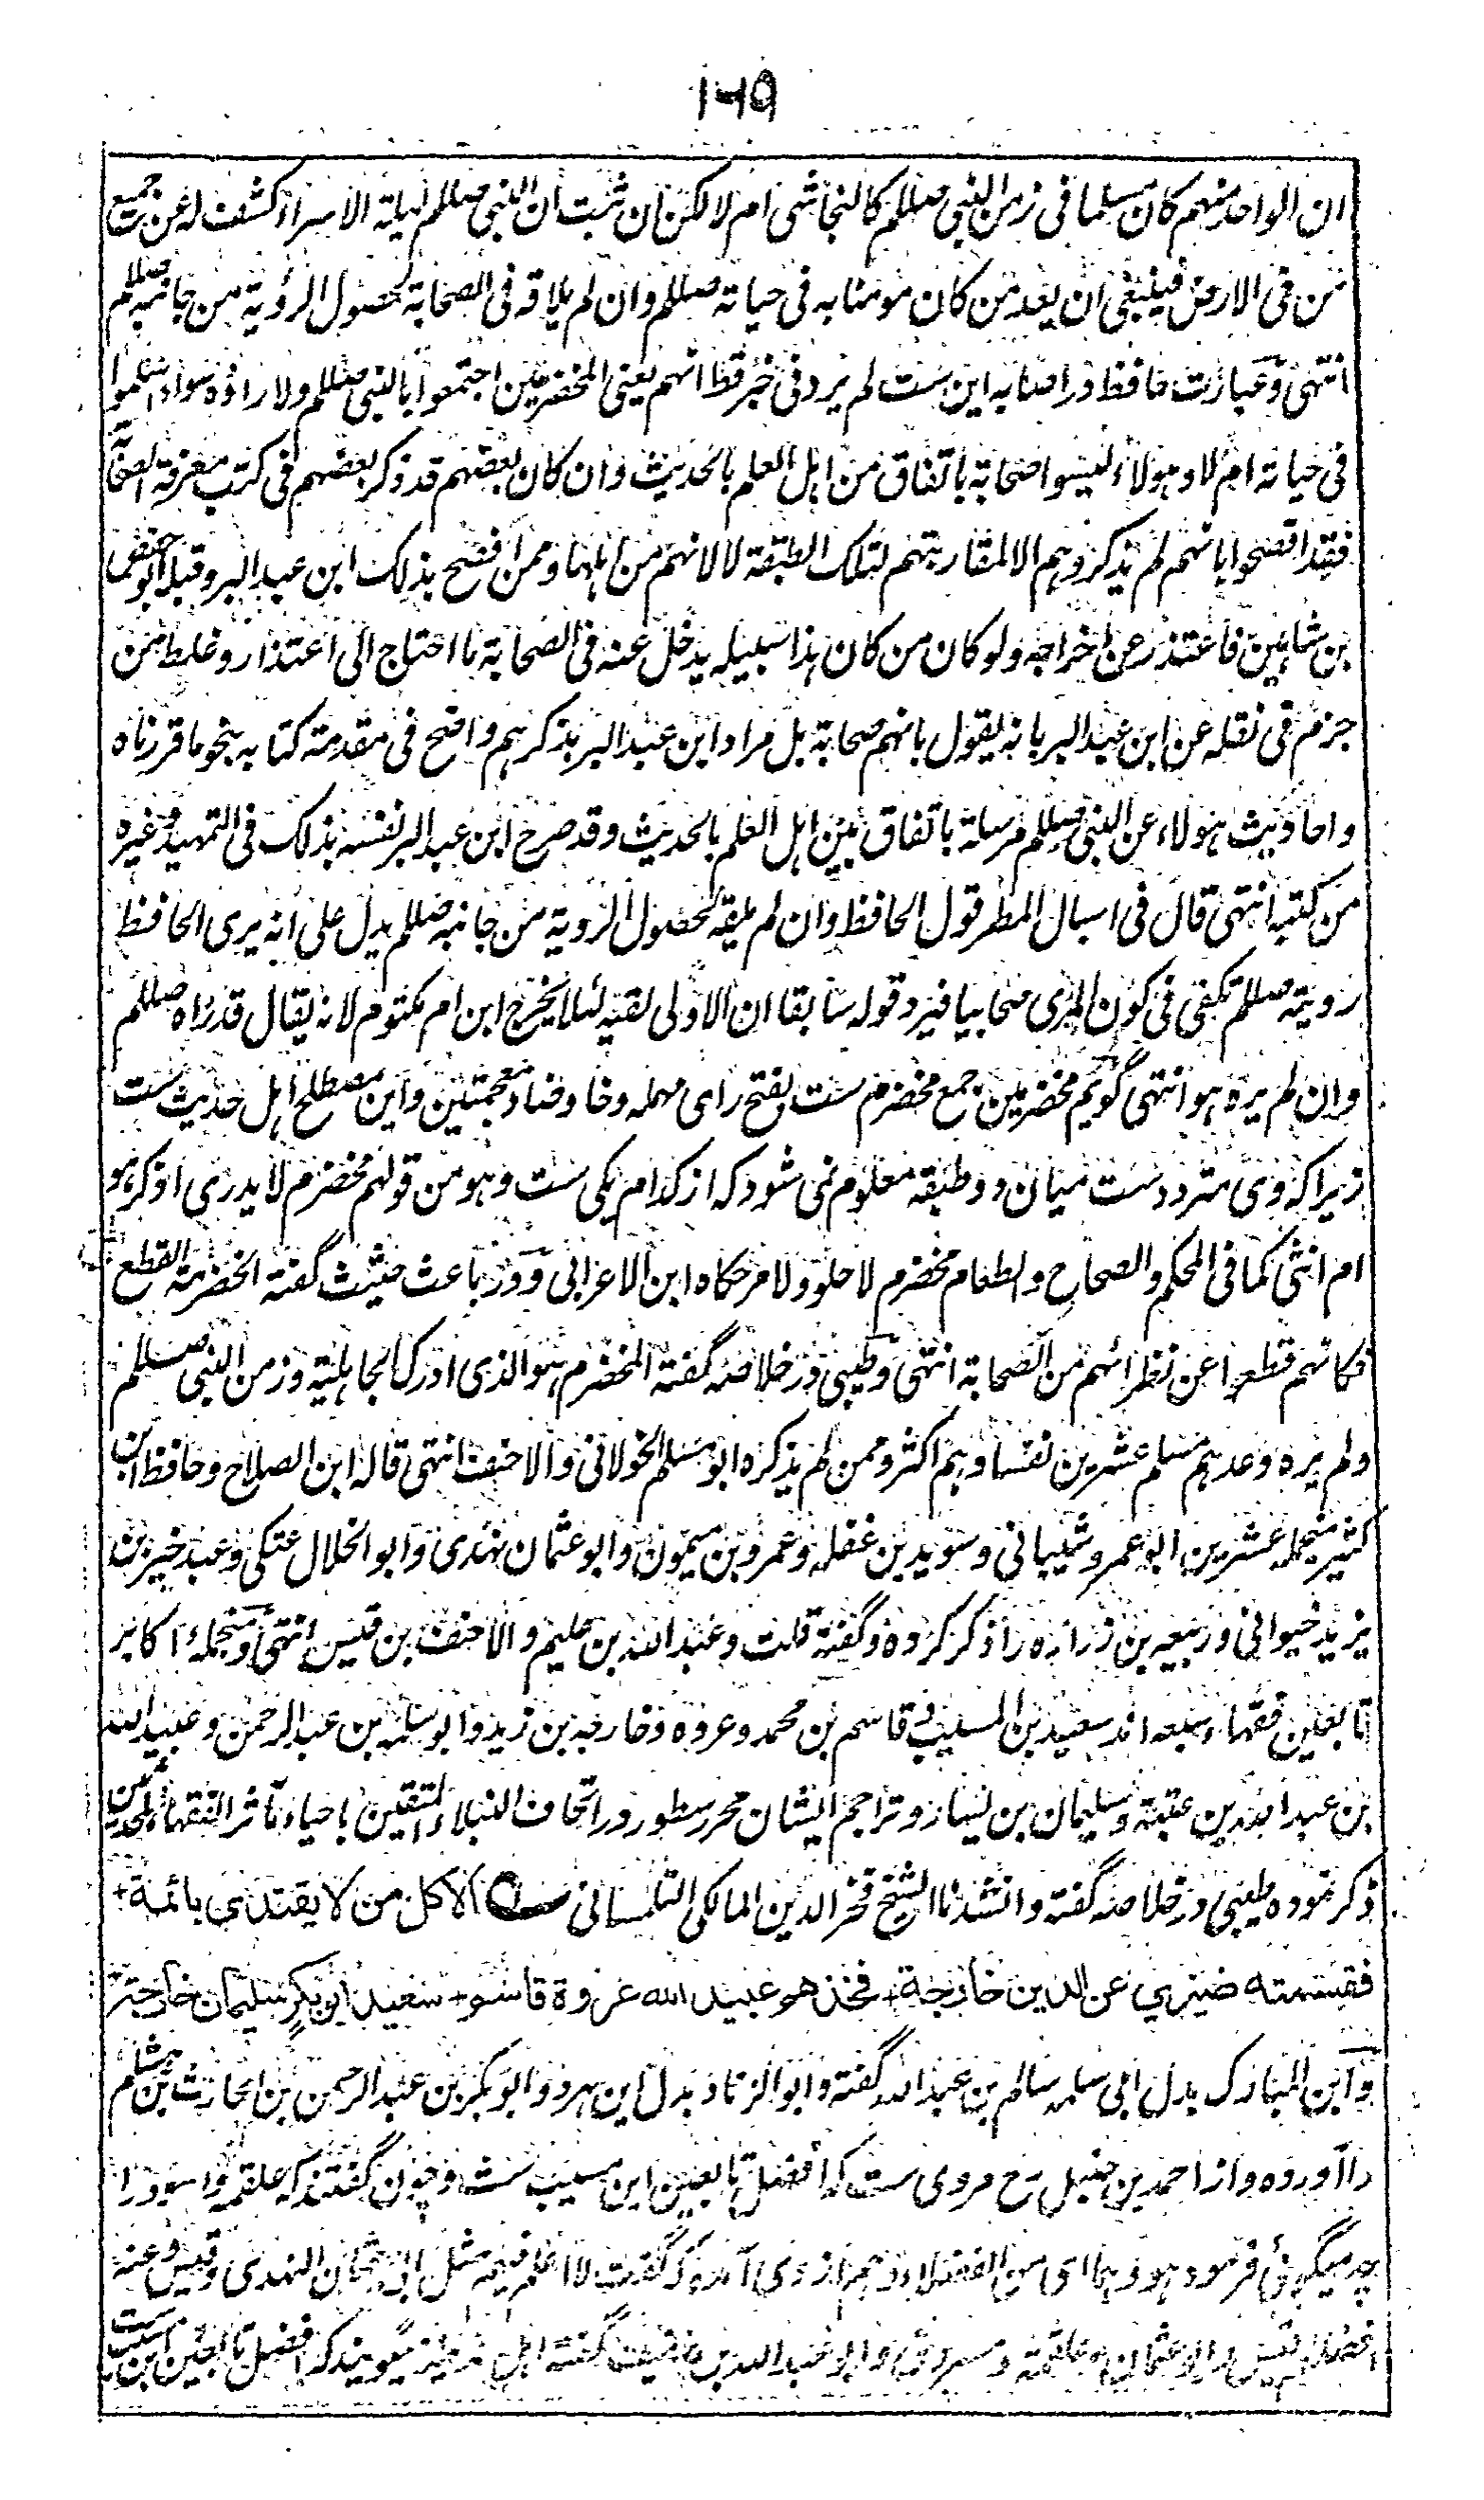 ۱۶۹
ان الواحد منهم كان مسلما فى زمن النبى صللم كالنجاشى ام لا لكن ان ثبت ان النبى صللم ليلة الاسراء كشف له عن جميع
من فى الارض فينبغى ان يعد من كان مومنا به فى حياته صللم وان لم يلاقه فى الصحابة لحصول الرؤية من جانبه صللم
انتهى وعبارت حافظ در اصابه اين ست لم يرد فى خبر قط انهم يعنى المخضرمين اجتمعوا بالنبى صللم ولا راؤه سواء اسلموا
فى حياته ام لا وهولاء ليسوا صحابة باتفاق من اهل العلم بالحديث وان كان بعضهم قد ذكر بعضهم فى كتب معرفة الصحابة
فقد افصحوا بانهم لم يذكروهم الا لمقاربتهم لتلك الطبقة لا لانهم من اهلها وممن افصح بذلك ابن عبد البر وقبله ابو حفص
بن شاهين فاعتذر عن اخراجه ولو كان من كان هذا سبيله يدخل عنه فى الصحابة ما احتاج الى اعتذار وغلط من
جزم فى نقله عن ابن عبد البر بانه يقول بانهم صحابة بل مراد ابن عبد البر بذكرهم واضح فى مقدمة كتابه بنحو ما قررناه
واحاديث هولاء عن النبى صللم مرسلة باتفاق بين اهل العلم بالحديث وقد صرح ابن عبد البر نفسه بذلك فى التمهيد وغيره
من كتبه انتهى قال فى اسبال المطر قول الحافظ وان لم يلقه لحصول الروية من جانبه صللم يدل على انه يرى الحافظ
رويته صللم تكفى فى كون المرى صحابيا فيرد قوله سابقا ان الاولى لقيه لئلا يخرج ابن ام مكتوم لانه يقال قد راه صللم
وان لم يره هو انتهى گويم مخضرمين جمع مخضرم ست بفتح راى مهمله وخا وضاد معجمتين واين مصطلح اهل حديث ست
زيرا كه وى متردد ست ميان دو طبقه معلوم نمى شود كه از كدام يكى ست وهو من قولهم مخضرم لا يدرى اذكر هو
ام انثى كما فى المحكم والصحاح وطعام مخضرم لا حلو ولا مر حكاه ابن الاعرابى ودر باعث حثيث گفته الخضرمة القطع
فكانهم قطعوا عن نظرائهم من الصحابة انتهى وطيبى در خلاصه گفته المخضرم هو الذى ادرك الجاهلية وزمن النبى صللم
ولم يره وعدهم مسلم عشرين نفسا وهم اكثر وممن لم يذكره ابو مسلم الخولانى والاحنف انتهى قاله ابن الصلاح وحافظ ابن
كثير منجمله عشرين ابو عمرو شيبانى وسويد بن غفله وعمرو بن ميمون وابو عثمان نهدى وابو الخلال عتكى وعبد خير بن
يزيد خيوانى وربيعه بن زراره را ذكر كرده وگفته قلت وعبد الله بن عليم والاحنف بن قيس انتهى ومنجملۂ اكابر
تابعين فقهاء سبعه اند سعيد بن المسيب قاسم بن محمد وعروه وخارجه بن زيد وابو سلمه بن عبد الرحمن وعبيد الله
بن عبد الله بن عتبة وسليمان بن يسار وتراجم ايشان محرر سطور در اتحاف النبلاء المتقين باحياء مآثر الفقهاء المحدثين
ذكر نموده طيبى در خلاصه گفته وانشدنا الشيخ فخر الدين المالكى التلمسانى الا كل من لا يقتدي بائمة +
فقسمته ضيزى عن الدين خارجة + فخذهم عبيد الله عروة قاسم + سعيد ابو بكر سليمان خارجة
وابن المبارك بدل ابى سلمه سالم بن عبد الله گفته وابو الزناد بدل اين هر دو ابو بكر بن عبد الرحمن بن الحارث بن هشام
را آورده واز احمد بن حنبل رح مروى ست كه افضل تابعين ابن مسيب ست وچون گفتند كه علقمه واسود را
چه ميگوئى فرمود هو وهما اى من الفضلاء وهم از وى آمده كه گفت لا اعلم فيهم مثل ابى عثمان النهدى وقيس وعنه
افضلهم قيس وابو عثمان وعلقمه ومسروق وابو عبد الله بن خفيف گفته اهل مدينه ميگويند كه افضل تابعين ابن مسيب ست